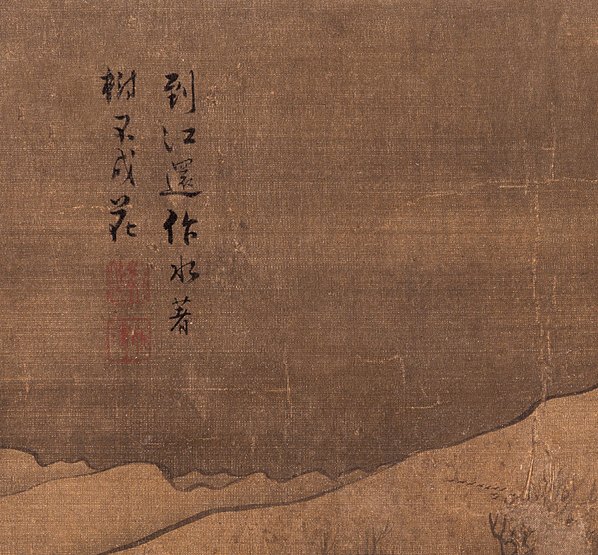 到江還作水著
樹不成花